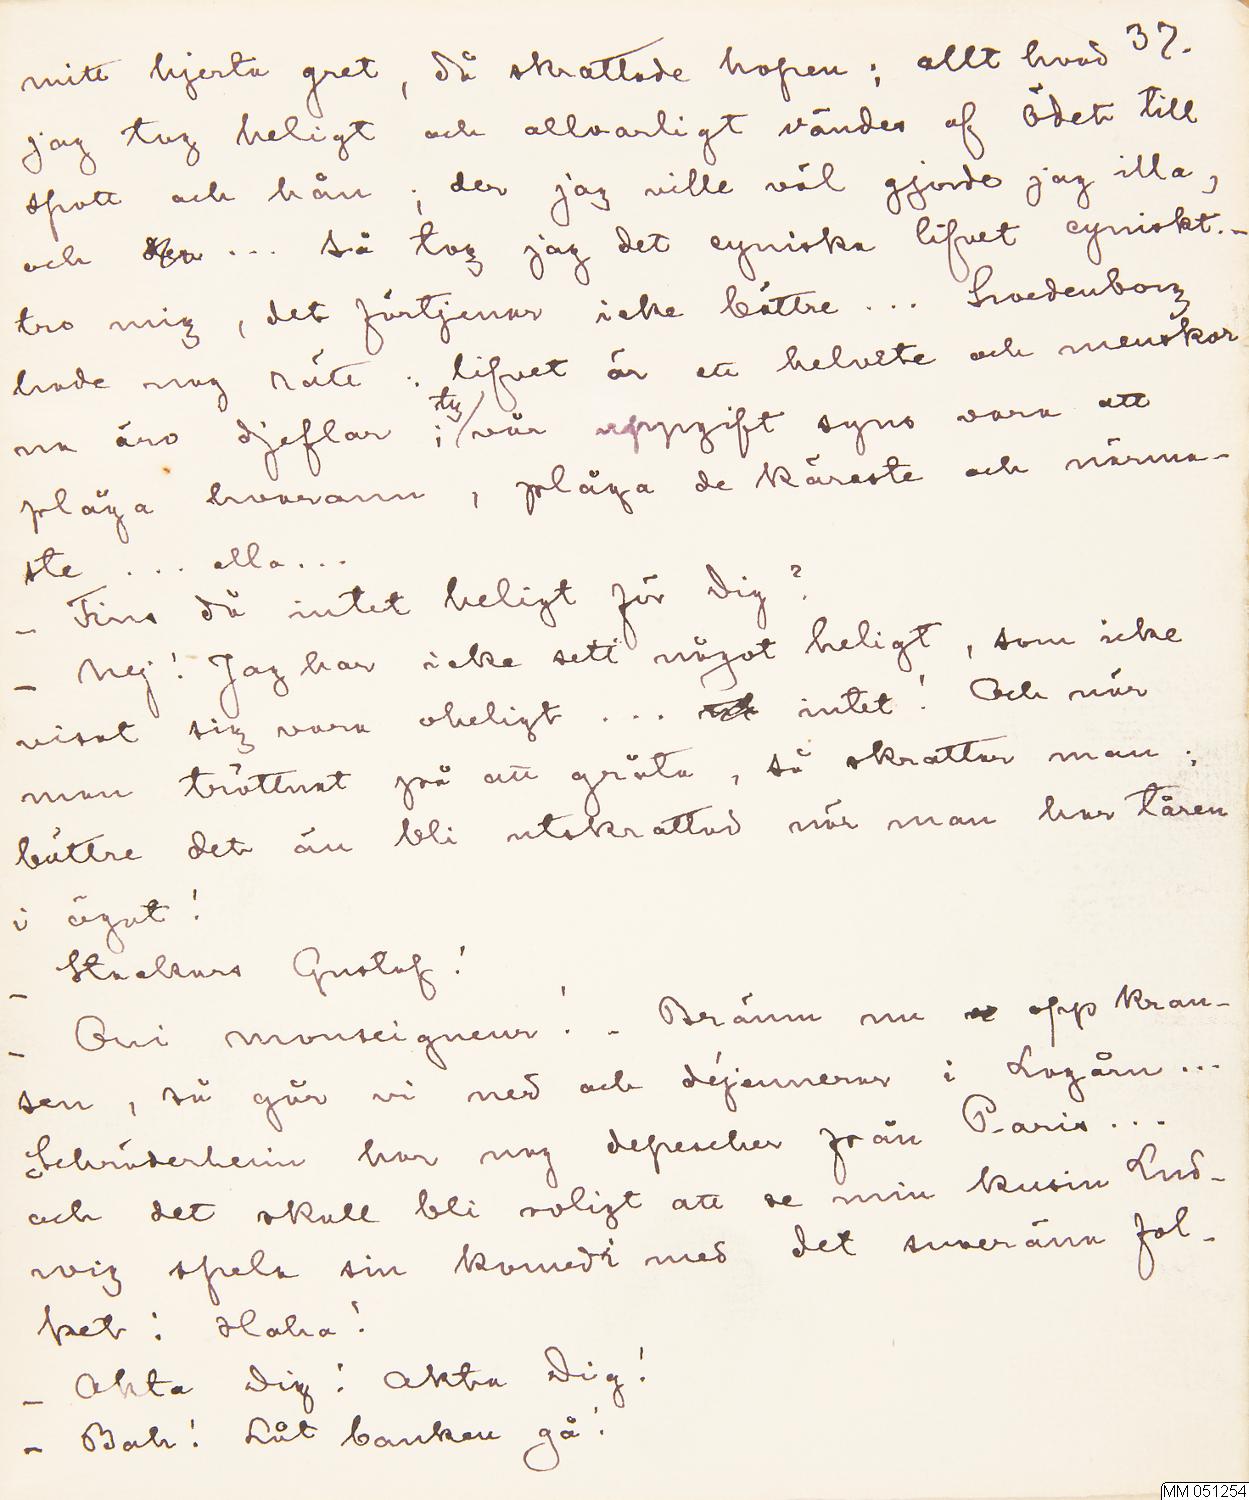 37.
mitt hjerta gret, då skrattade hopen; allt hvad
jag tog heligt och allvarligt vändes af ödet till
spott och hån; der jag ville väl gjorde jag illa,
och ... så tog jag det cyniska lifvet cyniskt. –
tro mig, det förtjenar icke bättre ... Swedenborg
hade nog rätt: lifvet är ett helvete och menskor
na äro djeflar i ty vår uppgift syns vara att
plåga hvarann, plåga de käraste och närma-
ste ... alla...
– Fins då intet heligt för Dig?
– Nej! Jag har icke sett något heligt, som icke
visat sig vara oheligt ... intet! Och när
man tröttnat på att gråta, så skrattar man;
bättre det än bli utskrattad när man har tåren
i ögat!
– Stackars Gustaf!
– Oui monseigneur! – Bränn nu opp kran-
sen, så går vi ned och déjeunerar i Logårn...
Schröderheim har nog depescher från Paris...
och det skall bli roligt att se min kusin Lud-
wig spela sin komedi med det suveräna fol-
ket! Haha!
– Akta Dig! Akta Dig!
– Bah! Låt banken gå!
MM 051254